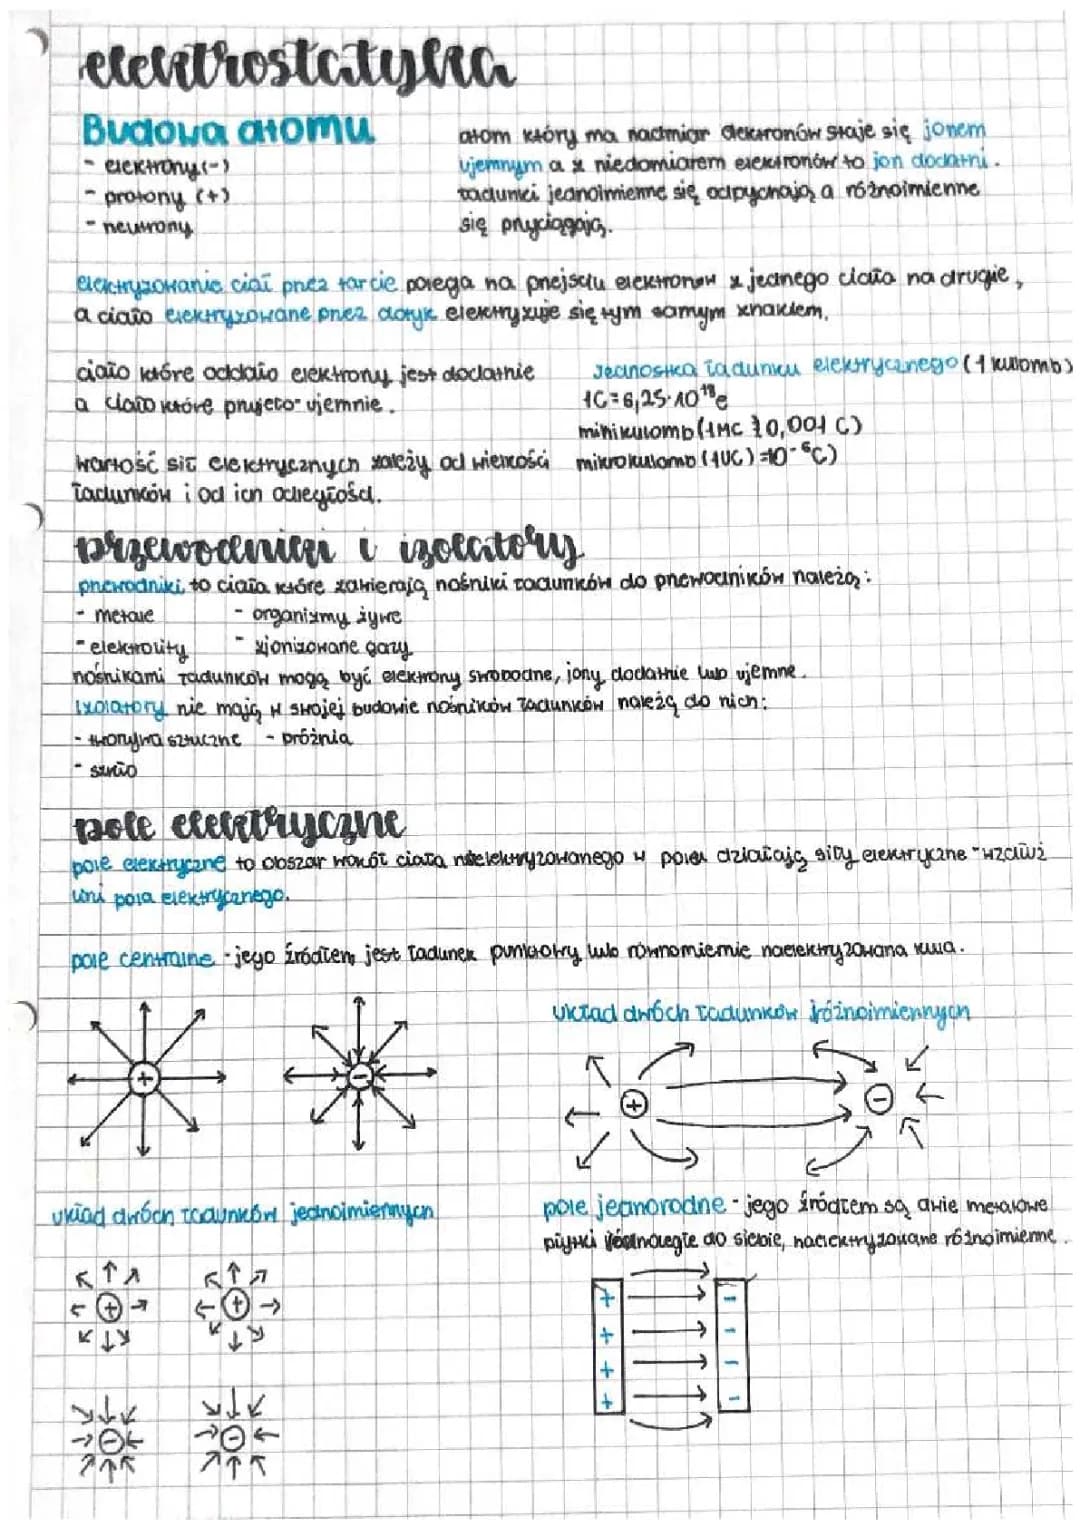 elektrostatyka
Budowa atomu
- elektrony (-)
- protony (+)
- neutrony
atom który ma nadmiar elektronów staje się jonem
ujemnym a z niedomiarem elektronów to jon dodatni.
ładunki jednoimienne się odpychają a różnoimienne
się przyciągają.
elektryzowanie ciał przez tarcie polega na przejściu elektronów z jednego ciała na drugie,
a ciało elektryzowane przez dotyk elektryzuje się tym samym znakiem,
ciało które oddało elektrony jest dodatnie
a ciało które przyjęło ujemnie.
Jednostka ładunku elektrycznego (1 kulomb)
1C = 6,25·10¹⁸e
milikulomb (1MC = 0,001 C)
mikrokulomb (1UC) = 10⁻⁶C)
wartość sił elektrycznych zależy od wielkości
ładunków i od ich odległości.
przewodniki i izolatory
przewodniki to ciała które zawierają nośniki ładunków do przewodników należą:
- metale - organizmy żywe
- elektrolity - zjonizowane gazy
nośnikami ładunków mogą być elektrony swobodne, jony dodatnie lub ujemne.
izolatory nie mają w swojej budowie nośników ładunków należą do nich:
- tworzywa sztuczne - próżnia
- szkło
pole elektryczne
pole elektryczne to obszar wokół ciała naelektryzowanego w polu działają siły elektryczne wzdłuż
linii pola elektrycznego.
pole centralne - jego źródłem jest ładunek punktowy lub równomiernie naelektryzowana kula.
układ dwóch ładunków różnoimiennych
+
-
+
-
układ dwóch ładunków jednoimiennych
pole jednorodne - jego źródłem są dwie metalowe
płytki równoległe do siebie, naelektryzowane różnoimienne.
+ +
- -
+ -
+ -
+ -
+ -